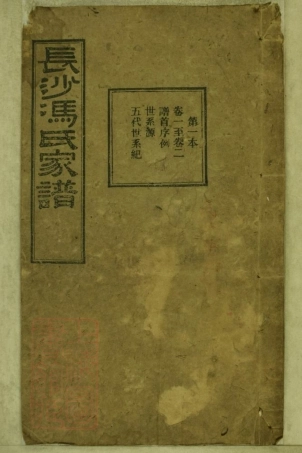 長沙馮氏家譜
第一本
卷一至卷二
譜首序例
世系源
五代世系紀